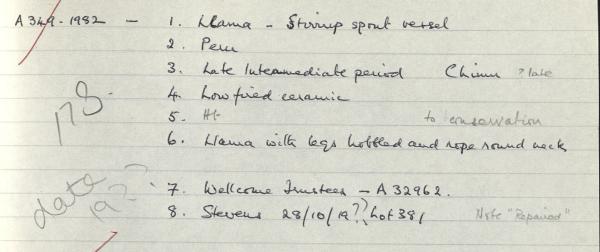 A 349-1982 - 1. Llama - Stirrup spout vessel
2. Peru
3. Late Intermediate period Chimu ? late
4. Low fired ceramic
5. Ht- to conservation
6. Llama with legs hobbled and rope round neck
178.
7. Wellcome Trustees - A 32962.
8. Stevens 28/10/19?? Lot 381 Note "Repaired"
date
19??